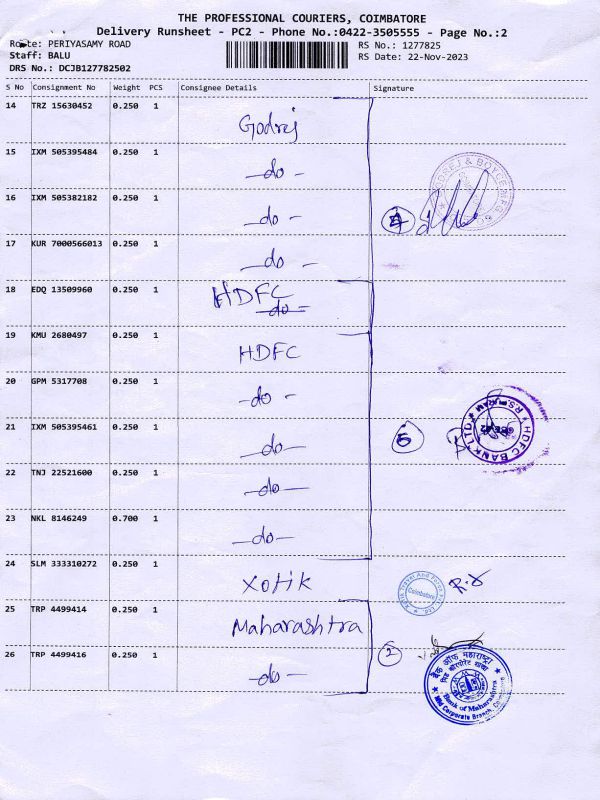 THE PROFESSIONAL COURIERS, COIMBATORE
Delivery Runsheet - PC2 - Phone No.:0422-3505555 - Page No.:2
Route: PERIYASAMY ROAD
Staff: BALU
DRS No.: DCJB127782502
RS No.: 1277825
RS Date: 22-Nov-2023
S No Consignment No Weight PCS Consignee Details Signature
14 TRZ 15630452 0.250 1 Godrej
15 IXM 505395484 0.250 1 -do-
16 IXM 505382182 0.250 1 -do-
4
17 KUR 7000566013 0.250 1 -do-
18 EDQ 13509960 0.250 1 HDFC
-do-
19 KMU 2680497 0.250 1 HDFC
20 GPM 5317708 0.250 1 -do-
21 IXM 505395461 0.250 1 -do-
HDFC BANK LTD. ★ R.S. PURAM ★
22 TNJ 22521600 0.250 1 -do-
23 NKL 8146249 0.700 1 -do-
24 SLM 333310272 0.250 1 Xotik
Coimbatore
25 TRP 4499414 0.250 1 Maharashtra
26 TRP 4499416 0.250 1 -do-
2
बैंक ऑफ महाराष्ट्र
मिड कॉरपोरेट शाखा
Bank of Maharashtra
Mid Corporate Branch, Coimbatore